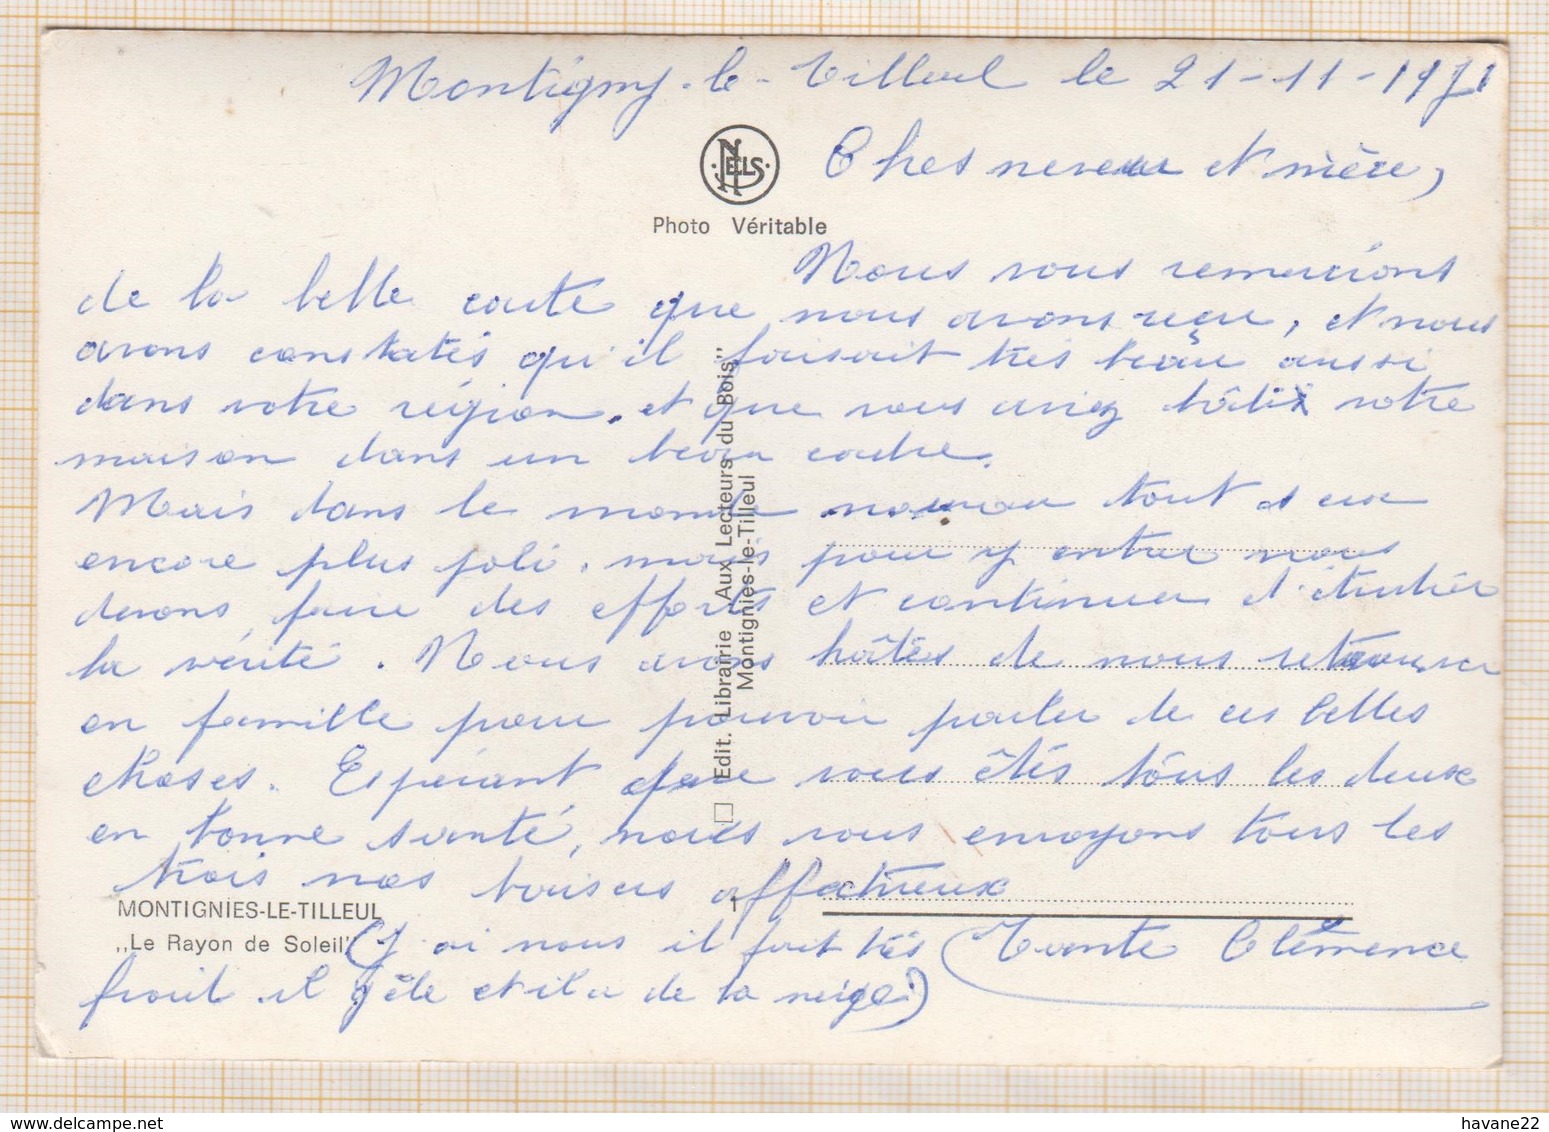 Montigny-le-Tilleul le 21-11-1971
Chers neveu et nièce,
NELS
Photo Véritable
Nous vous remercions
de la belle carte que nous avons reçu, et nous
avons constatés qu'il faisait très beau aussi
dans votre région, et que vous aviez bâti votre
maison dans un beau cadre.
Mais dans le monde nouveau tout sera
encore plus joli, mais pour y entrer nous
devons faire des efforts et continuer d'étudier
la vérité. Nous avons hâtés de nous retrouver
en famille pour pouvoir parler de ces belles
choses. Espérant que vous êtés tous les deux
en bonne santé, nous vous envoyons tous les
trois nos baisers affectueux
Tante Clémence
(Ici nous il fait très
froid il gèle et il a de la neige)
MONTIGNIES-LE-TILLEUL
,,Le Rayon de Soleil"
Edit. Librairie Aux Lecteurs du Bois"
Montignies-le-Tilleul
havane22